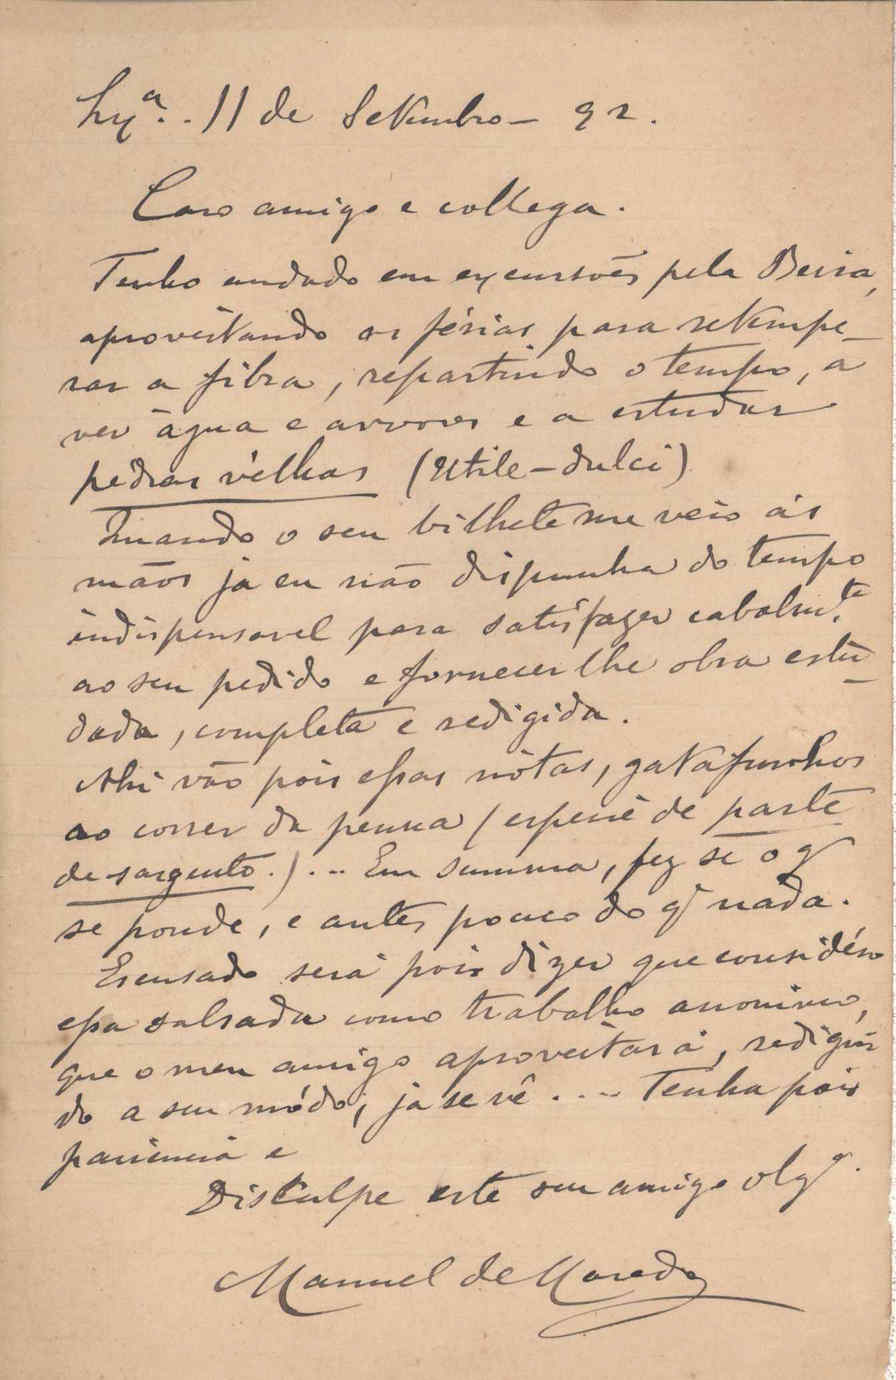 11 de Setembro – 92.
Caro amigo e collega.
Tenho andado em excursões pela Beira,
aproveitando as férias para retempe-
rar a fibra, repartindo o tempo, a
ver àgua e arvores e a estudar
pedras vélhas (Utile – dulci)
Quando o seu bilhete me veio ás
mãos ja eu não dispunha do tempo
indispensavel para satisfazer cabalmte
ao seu pedido e fornecer lhe obra estu-
dada, completa e redigida.
Ahi vão pois essas nótas, gatafunhos
ao correr da penna (especie de parte
de sargento.) ... Em summa, fez se o q
se poude, e antes pouco do q nada.
Escusado será pois dizer que considéro
essa salsada como trabalho anonimo,
que o meu amigo aproveitará, redigin
do a seu módo, ja se vê .... Tenha pois
paciencia e
Disculpe este seu amigo olgo.
Manuel de